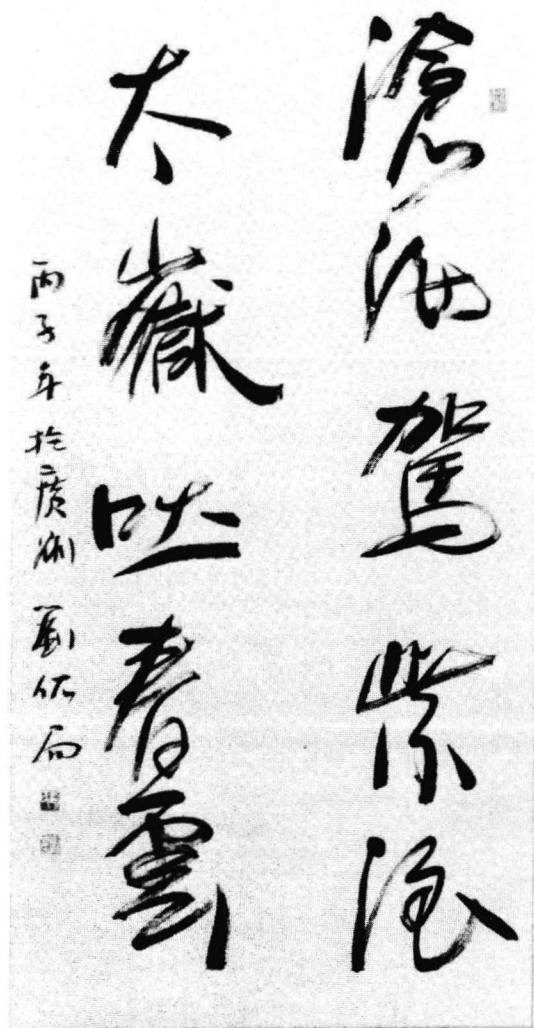 滄海駕紫
太嶽吐春雲
丙子年於廣州 劉佑局